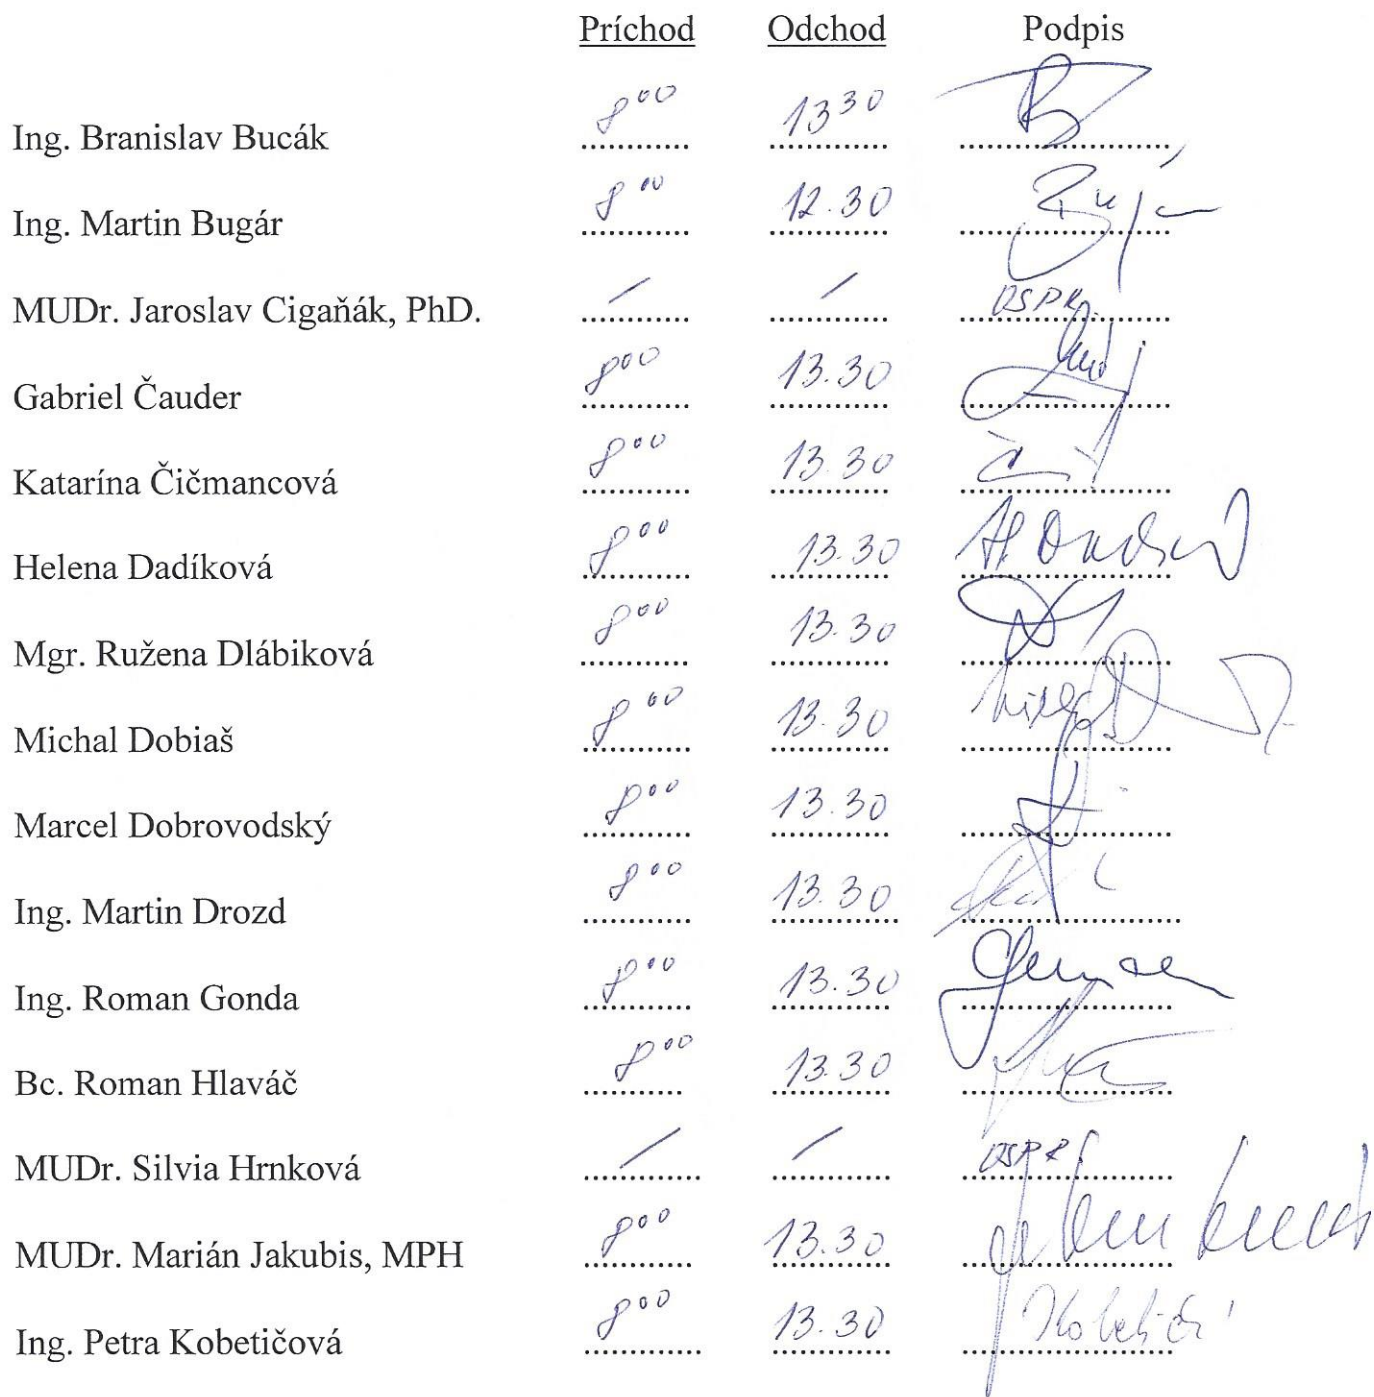 Príchod Odchod Podpis
Ing. Branislav Bucák 8 00 13 30
Ing. Martin Bugár 8 00 12.30
MUDr. Jaroslav Cigaňák, PhD. / /
Gabriel Čauder 8 00 13.30
Katarína Čičmancová 8 00 13.30
Helena Dadíková 8 00 13.30
Mgr. Ružena Dlábiková 8 00 13.30
Michal Dobiaš 8 00 13.30
Marcel Dobrovodský 8 00 13.30
Ing. Martin Drozd 8 00 13.30
Ing. Roman Gonda 8 00 13.30
Bc. Roman Hlaváč 8 00 13.30
MUDr. Silvia Hrnková / /
MUDr. Marián Jakubis, MPH 8 00 13.30
Ing. Petra Kobetičová 8 00 13.30